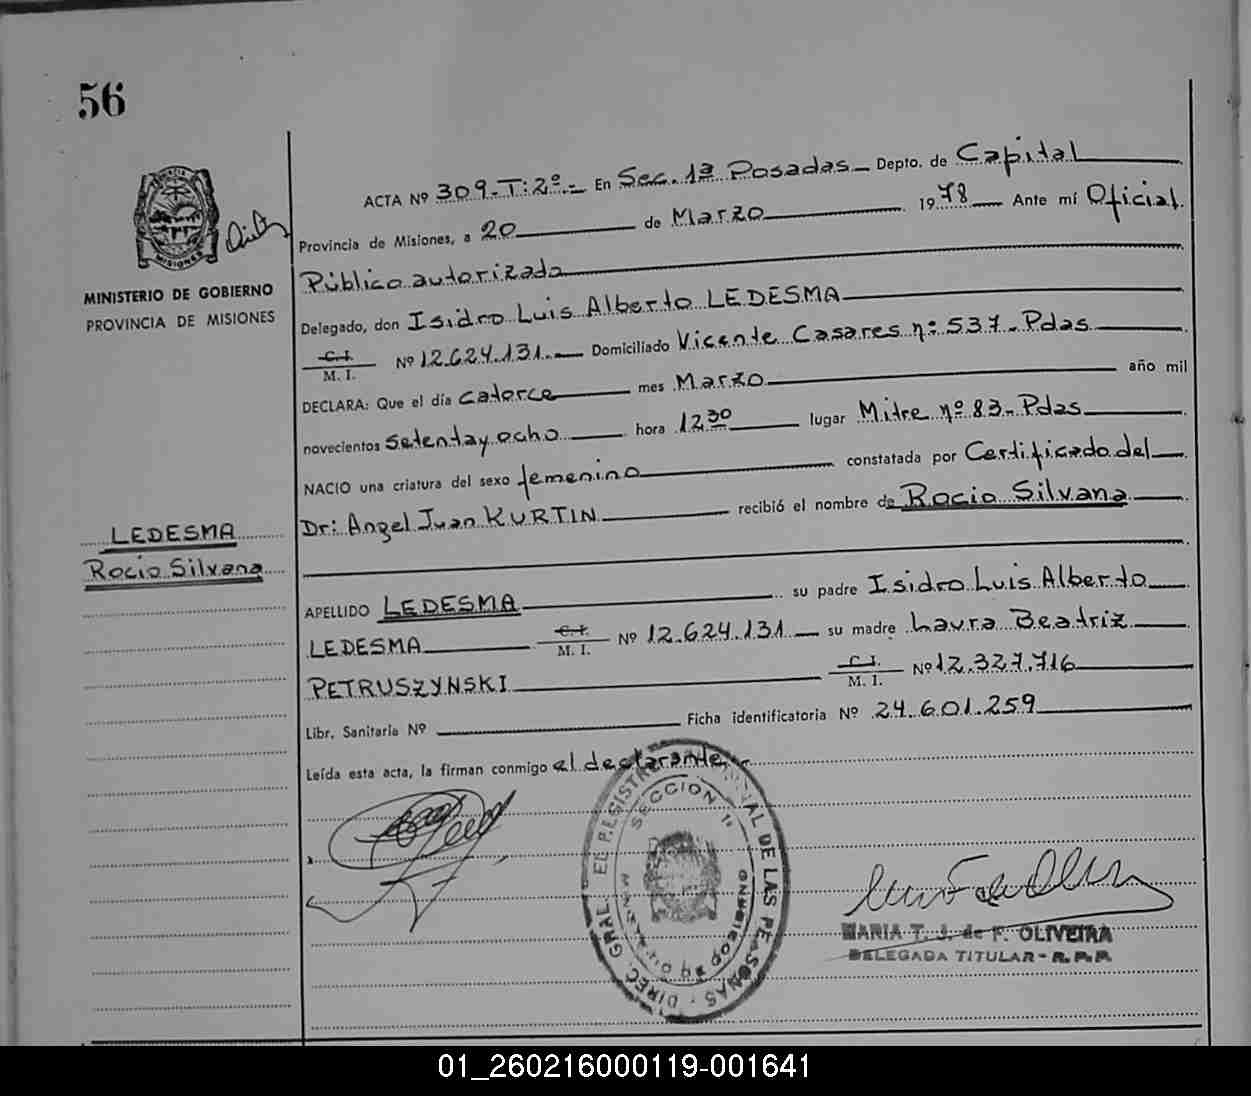 56
ACTA Nº 309-T:2º.- En Sec. 1ª Posadas- Depto. de Capital
Provincia de Misiones, a 20 de Marzo 1978 Ante mí Oficial
Público autorizado
MISIONES
MINISTERIO DE GOBIERNO
PROVINCIA DE MISIONES
Delegado, don Isidro Luis Alberto LEDESMA
C.I.
M. I. Nº 12.624.131.- Domiciliado Vicente Casares nº 537-Pdas
DECLARA: Que el día catorce mes Marzo año mil
novecientos setenta y ocho hora 12,30 lugar Mitre nº 83-Pdas
NACIO una criatura del sexo femenino constatada por Certificado del
Dr: Angel Juan KURTIN recibió el nombre de Rocio Silvana
LEDESMA
Rocio Silvana
APELLIDO LEDESMA su padre Isidro Luis Alberto
LEDESMA C.I. M. I. Nº 12.624.131 su madre Laura Beatriz
PETRUSZYNSKI C.I. M. I. Nº 12.327.716
Libr. Sanitaria Nº Ficha identificatoria Nº 24.601.259
Leída esta acta, la firman conmigo el declarante.-
DIREC. GRAL. DE LAS PERSONAS
SECCION 1ª
MARIA T. J. de F. OLIVEIRA
DELEGADA TITULAR - R.P.P.
01_260216000119-001641